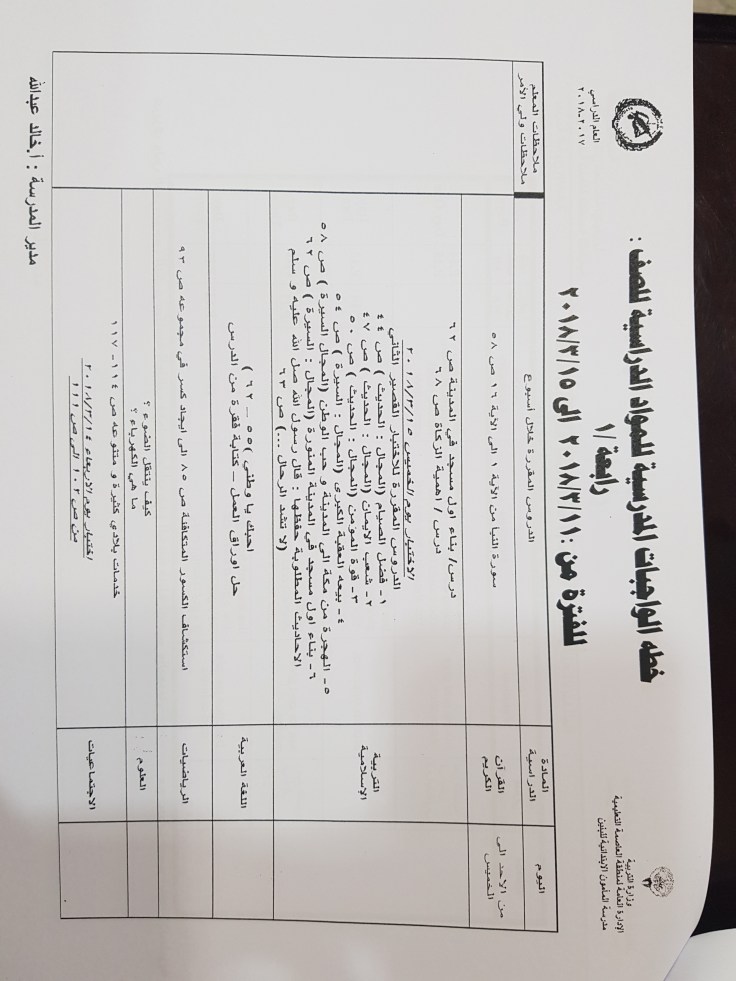 وزارة التربية
الإدارة العامة لمنطقة العاصمة التعليمية
مدرسة المأمون الابتدائية للبنين
العام الدراسي
٢٠١٧-٢٠١٨
خطه الواجبات المدرسية للمواد الدراسية للصف :
رابعة/١
للفترة من :٢٠١٨/٣/١١ الى ٢٠١٨/٣/١٥
اليوم
المادة الدراسية
الدروس المقررة خلال أسبوع
ملاحظات المعلم
ملاحظات ولي الأمر
من الاحد الى الخميس
القرآن الكريم
سورة النبا من الآية ١ الى الآية ١٦ ص ٥٨
التربية الاسلامية
درس/ بناء اول مسجد في المدينة ص ٦٢
درس / اهمية الزكاة ص ٦٨
الاختبار يوم الخميس ٢٠١٨/٣/١٥
الدروس المقررة للاختبار القصير الثاني
١- فضل الصيام (المجال : الحديث ) ص ٤٤
٢- شعب الايمان (المجال : الحديث ) ص ٤٧
٣- قوة المؤمن (المجال : الحديث ) ص ٥٠
٤- بيعه العقبة الكبرى (المجال : السيرة ) ص ٥٤
٥- الهجرة من مكة الى المدينة و حب الوطن (المجال السيرة ) ص ٥٨
٦- بناء اول مسجد في المدينة المنورة (المجال : السيرة ) ص ٦٢
الاحاديث المطلوبة حفظها : قال رسول الله صل الله عليه و سلم
(لا تشد الرحال ...) ص ٦٣
اللغة العربية
احبك يا وطني ) ٥٥ – ٦٢ )
حل اوراق العمل – كتابة فقرة من الدرس
الرياضيات
استكشاف الكسور المتكافئة ص ٨٥ الى ايجاد كسر في مجموعه ص ٩٣
العلوم
كيف ينتقل الضوء ؟
ما هي الكهرباء ؟
الاجتماعيات
خدمات بلادي كثيرة و متنوعه ص ١١٤ – ١١٧
اختبار يوم الاربعاء ٢٠١٨/٣/١٤
من ص ١٠٢ الى ص ١١١
مدير المدرسة : أ.خالد عبدالله